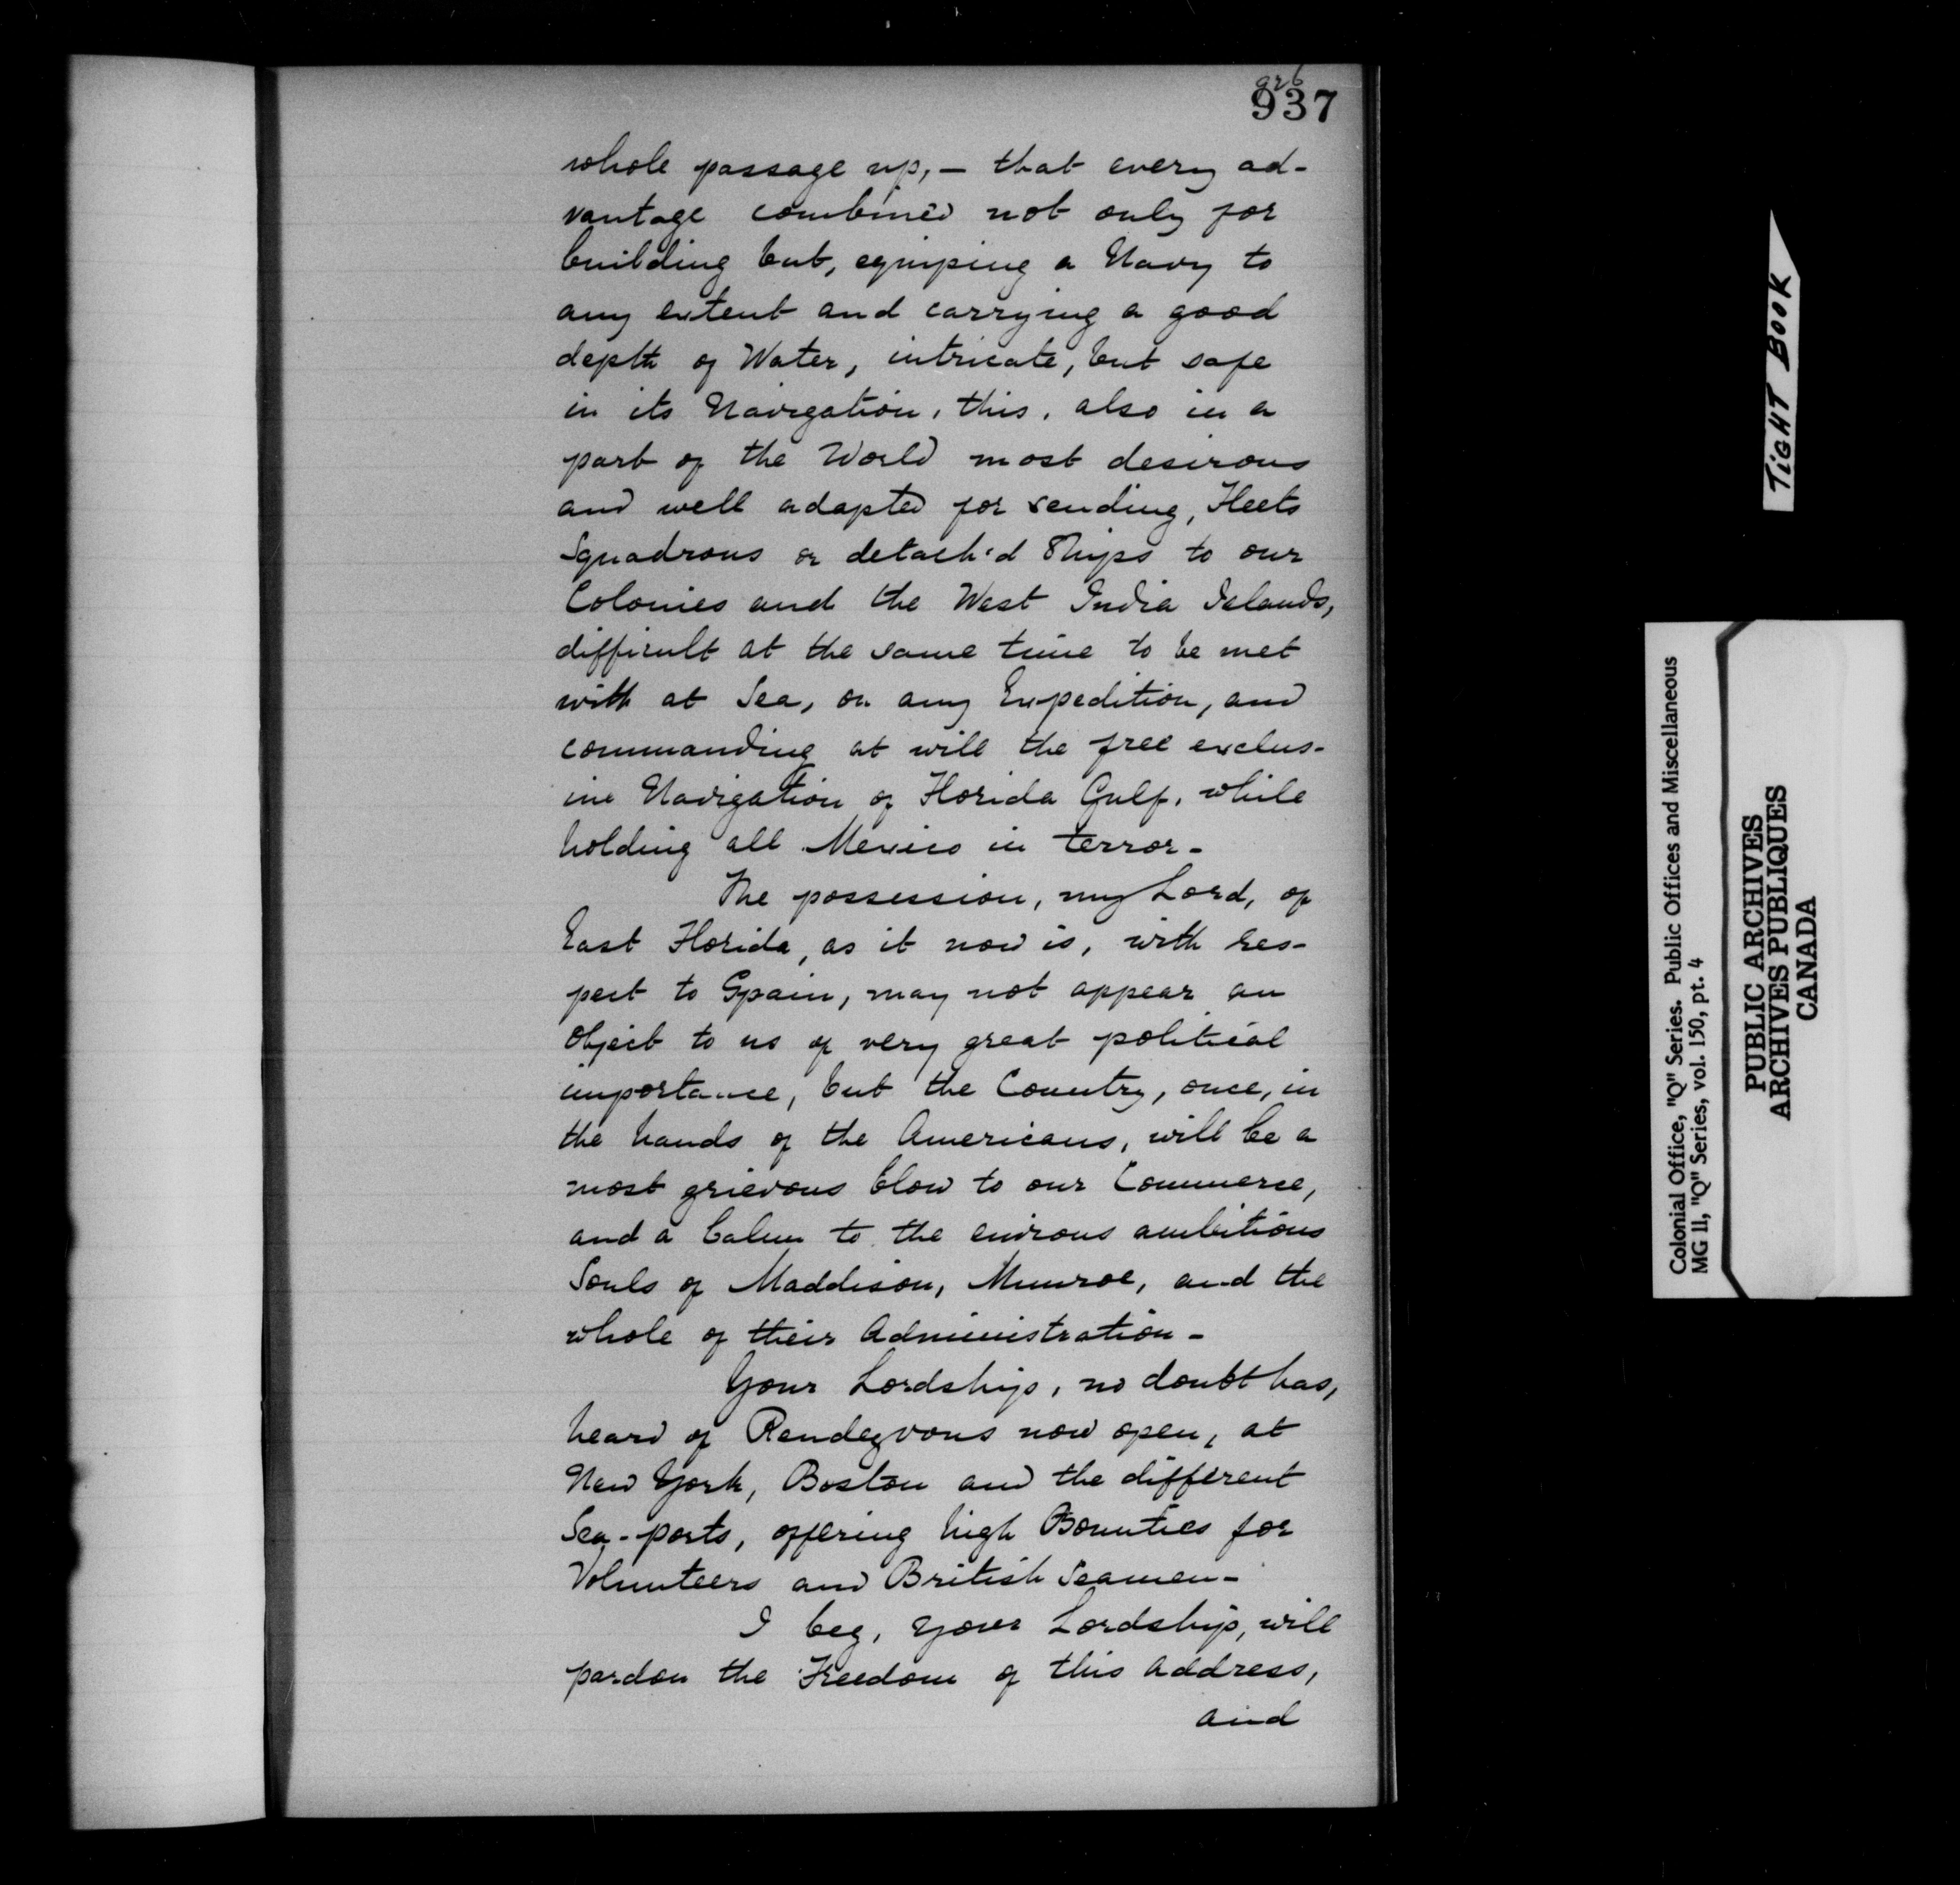 937
whole passage up, — that every ad-
vantage combined not only for
building but, equiping a Navy to
any extent and carrying a good
depth of Water, intricate, but safe
in its Navigation, this, also in a
part of the World most desirous
and well adapted for sending, Fleets
Squadrons or detach'd Ships to our
Colonies and the West India Islands,
difficult at the same time to be met
with at Sea, on any Expedition, and
commanding at will the free exclus-
ive Navigation of Florida Gulf, while
holding all Mexico in terror -
The possession, my Lord, of
East Florida, as it now is, with res-
pect to Spain, may not appear an
Object to us of very great political
importance, but the Country, once, in
the hands of the Americans, will be a
most grievous blow to our Commerce,
and a balm to the envious ambitious
Souls of Maddison, Munroe, and the
whole of their Administration -
Your Lordship, no doubt has,
heard of Rendezvous now open, at
New York, Boston and the different
Sea-ports, offering high Bounties for
Volunteers and British Seamen -
I beg, your Lordship, will
pardon the Freedom of this Address,
and
TIGHT BOOK
Colonial Office, "Q" Series. Public Offices and Miscellaneous
MG 11, "Q" Series, vol. 150, pt. 4
PUBLIC ARCHIVES
ARCHIVES PUBLIQUES
CANADA